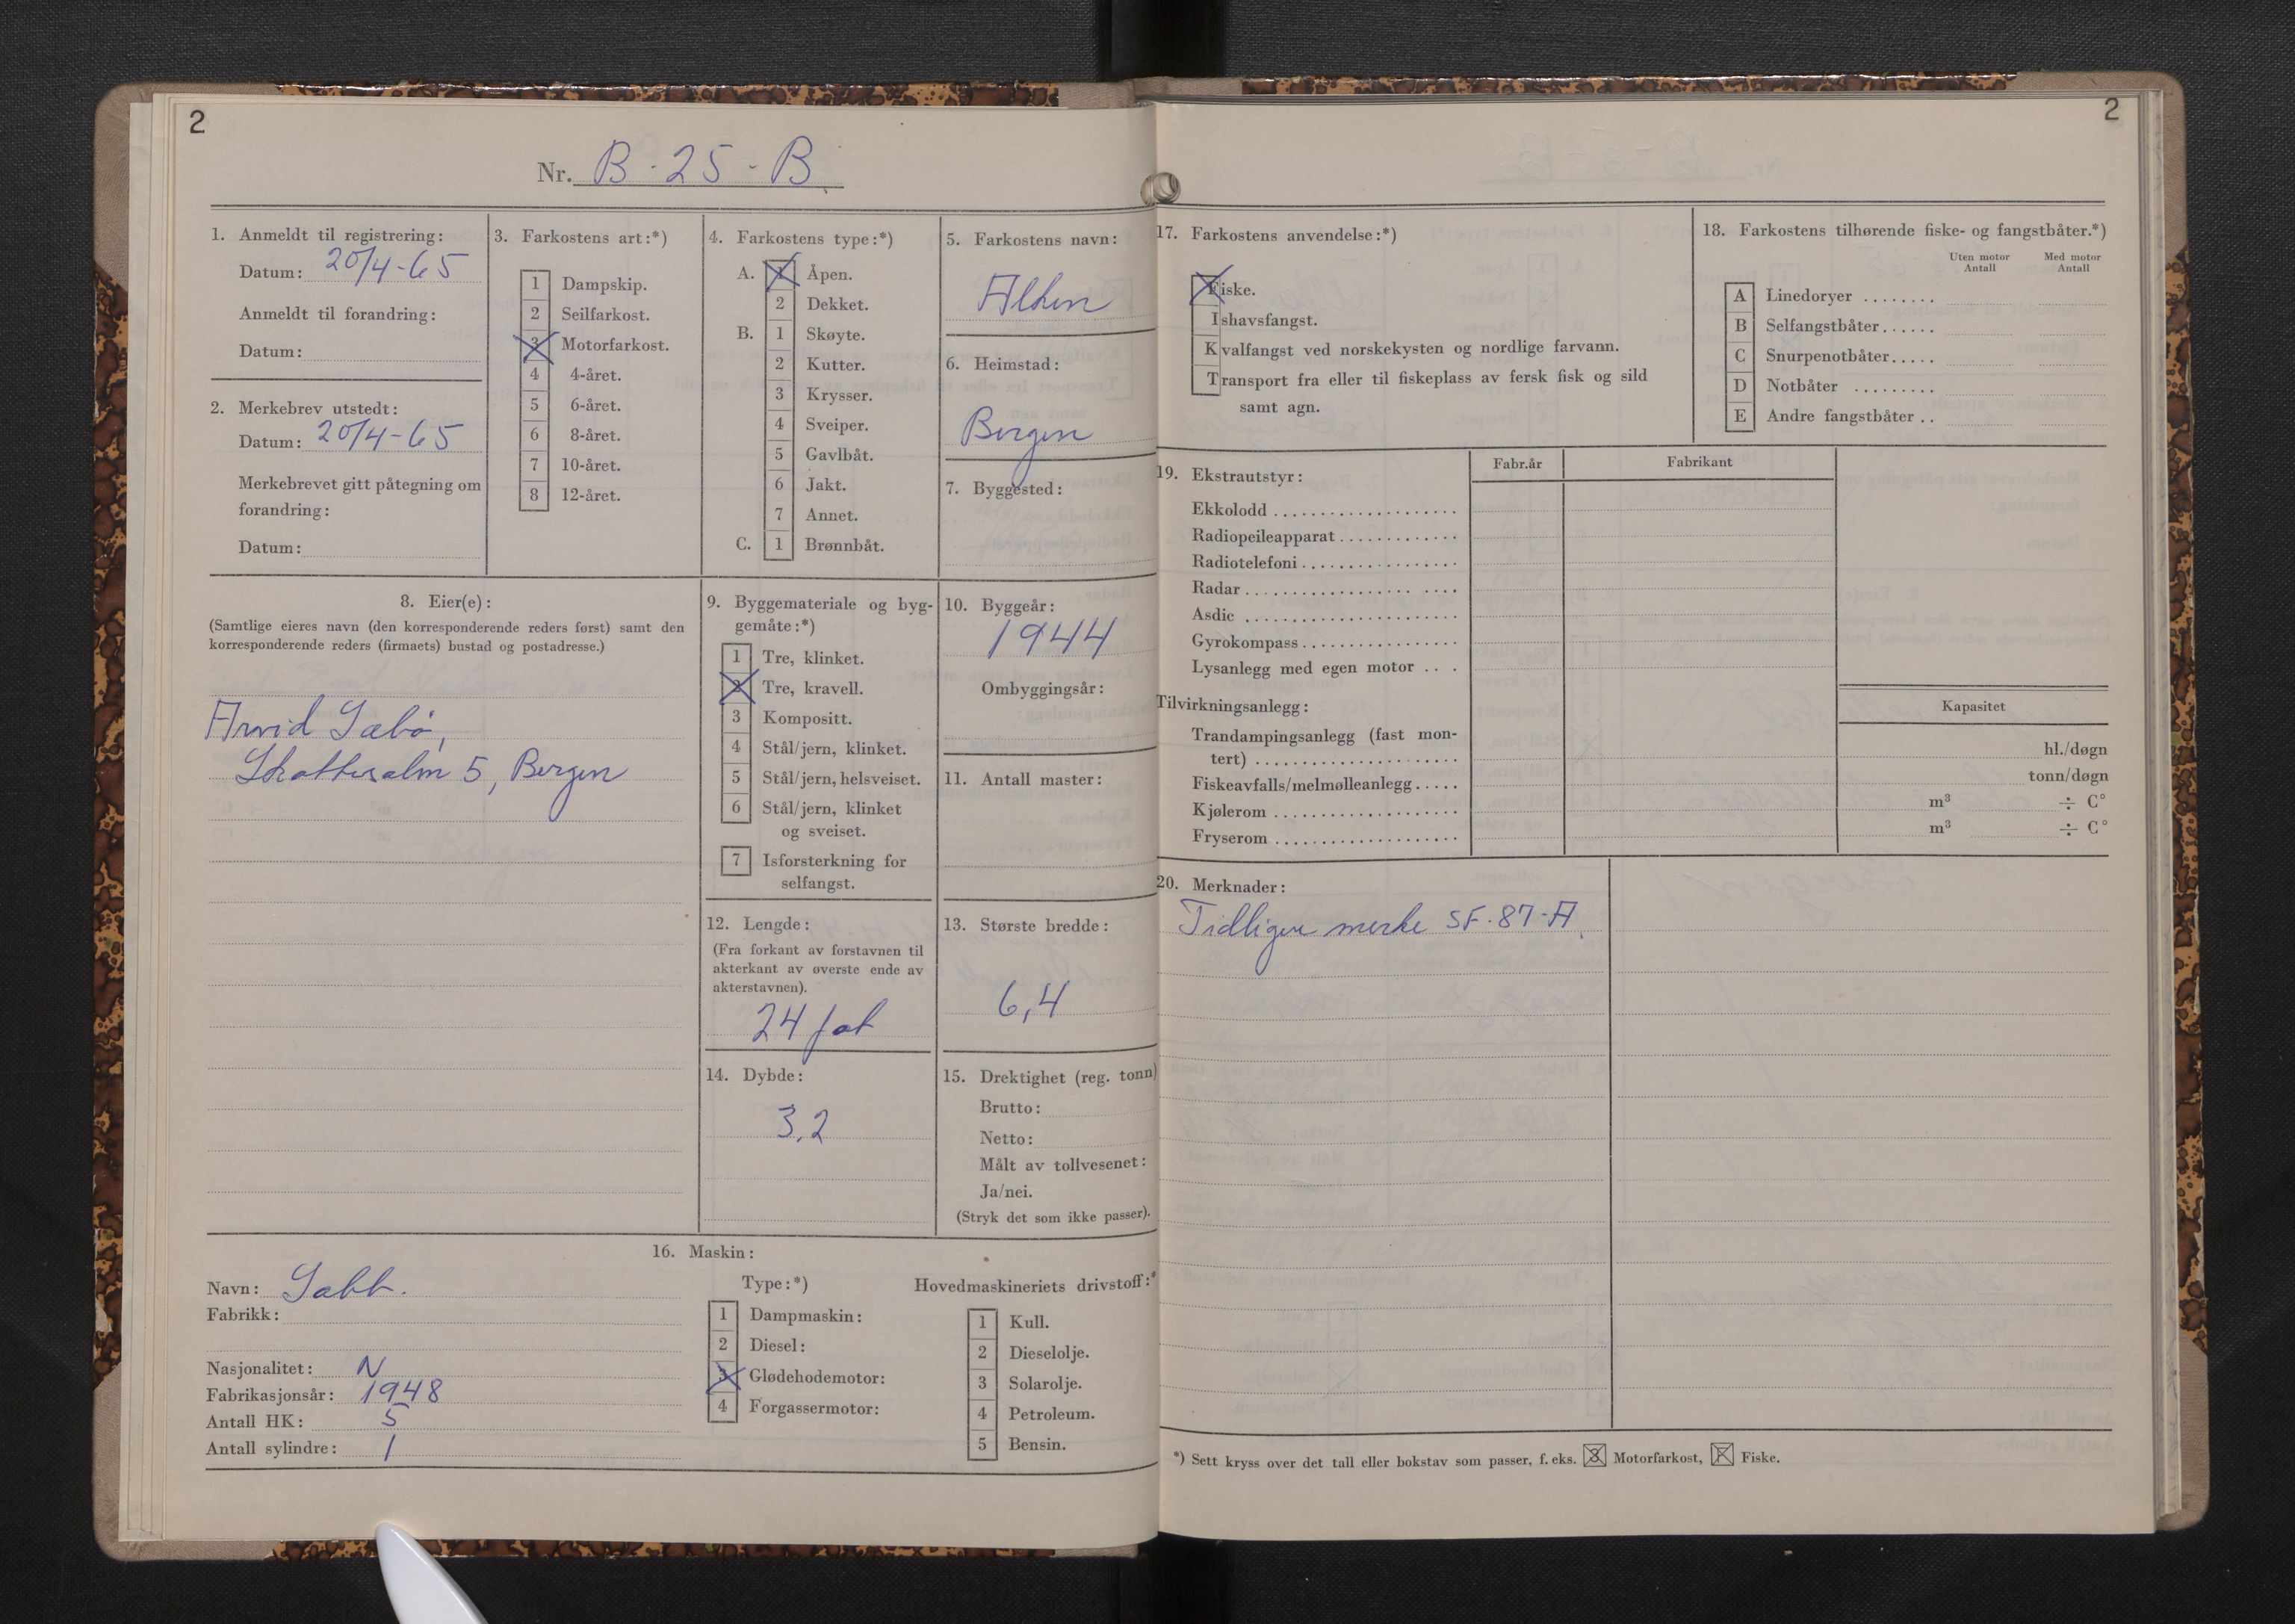 2
Nr. B-25-B.
1. Anmeldt til registrering:
Datum: 20/4-65
Anmeldt til forandring:
Datum:
2. Merkebrev utstedt:
Datum: 20/4-65
Merkebrevet gitt påtegning om
forandring:
Datum:
3. Farkostens art:*)
1 Dampskip.
2 Seilfarkost.
3 Motorfarkost.
4 4-året.
5 6-året.
6 8-året.
7 10-året.
8 12-året.
4. Farkostens type:*)
A. 1 Åpen.
2 Dekket.
B. 1 Skøyte.
2 Kutter.
3 Krysser.
4 Sveiper.
5 Gavlbåt.
6 Jakt.
7 Annet.
C. 1 Brønnbåt.
5. Farkostens navn:
6. Heimstad:
Bergen
7. Byggested:
8. Eier(e):
(Samtlige eieres navn (den korresponderende reders først) samt den
korresponderende reders (firmaets) bustad og postadresse.)
Arvid Sæbø,
5, Bergen
9. Byggemateriale og byg-
gemåte:*)
1 Tre, klinket.
2 Tre, kravell.
3 Kompositt.
4 Stål/jern, klinket.
5 Stål/jern, helsveiset.
6 Stål/jern, klinket
og sveiset.
7 Isforsterkning for
selfangst.
10. Byggeår:
1944
Ombyggingsår:
11. Antall master:
12. Lengde:
(Fra forkant av forstavnen til
akterkant av øverste ende av
akterstavnen).
24 fot
13. Største bredde:
6,4
14. Dybde:
3.2
15. Drektighet (reg. tonn)
Brutto:
Netto:
Målt av tollvesenet:
Ja/nei.
(Stryk det som ikke passer).
16. Maskin:
Navn: Sabb.
Fabrikk:
Nasjonalitet: N
Fabrikasjonsår: 1948
Antall HK: 5
Antall sylindre: 1
Type:*)
1 Dampmaskin:
2 Diesel:
3 Glødehodemotor:
4 Forgassermotor:
Hovedmaskineriets drivstoff:*
1 Kull.
2 Dieselolje.
3 Solarolje.
4 Petroleum.
5 Bensin.
2
17. Farkostens anvendelse:*)
Fiske.
Ishavsfangst.
Kvalfangst ved norskekysten og nordlige farvann.
Transport fra eller til fiskeplass av fersk fisk og sild
samt agn.
18. Farkostens tilhørende fiske- og fangstbåter.*)
Uten motor Med motor
Antall Antall
A Linedoryer ........
B Selfangstbåter......
C Snurpenotbåter.....
D Notbåter .........
E Andre fangstbåter ..
19. Ekstrautstyr:
Fabr.år Fabrikant
Ekkolodd
Radiopeileapparat
Radiotelefoni
Radar
Asdic
Gyrokompass
Lysanlegg med egen motor
Tilvirkningsanlegg:
Kapasitet
Trandampingsanlegg (fast mon-
tert) hl./døgn
Fiskeavfalls/melmølleanlegg..... tonn/døgn
Kjølerom m³ ÷ C°
Fryserom m³ ÷ C°
20. Merknader:
Tidligere merke SF-87-A.
*) Sett kryss over det tall eller bokstav som passer, f. eks. 3 Motorfarkost, F Fiske.